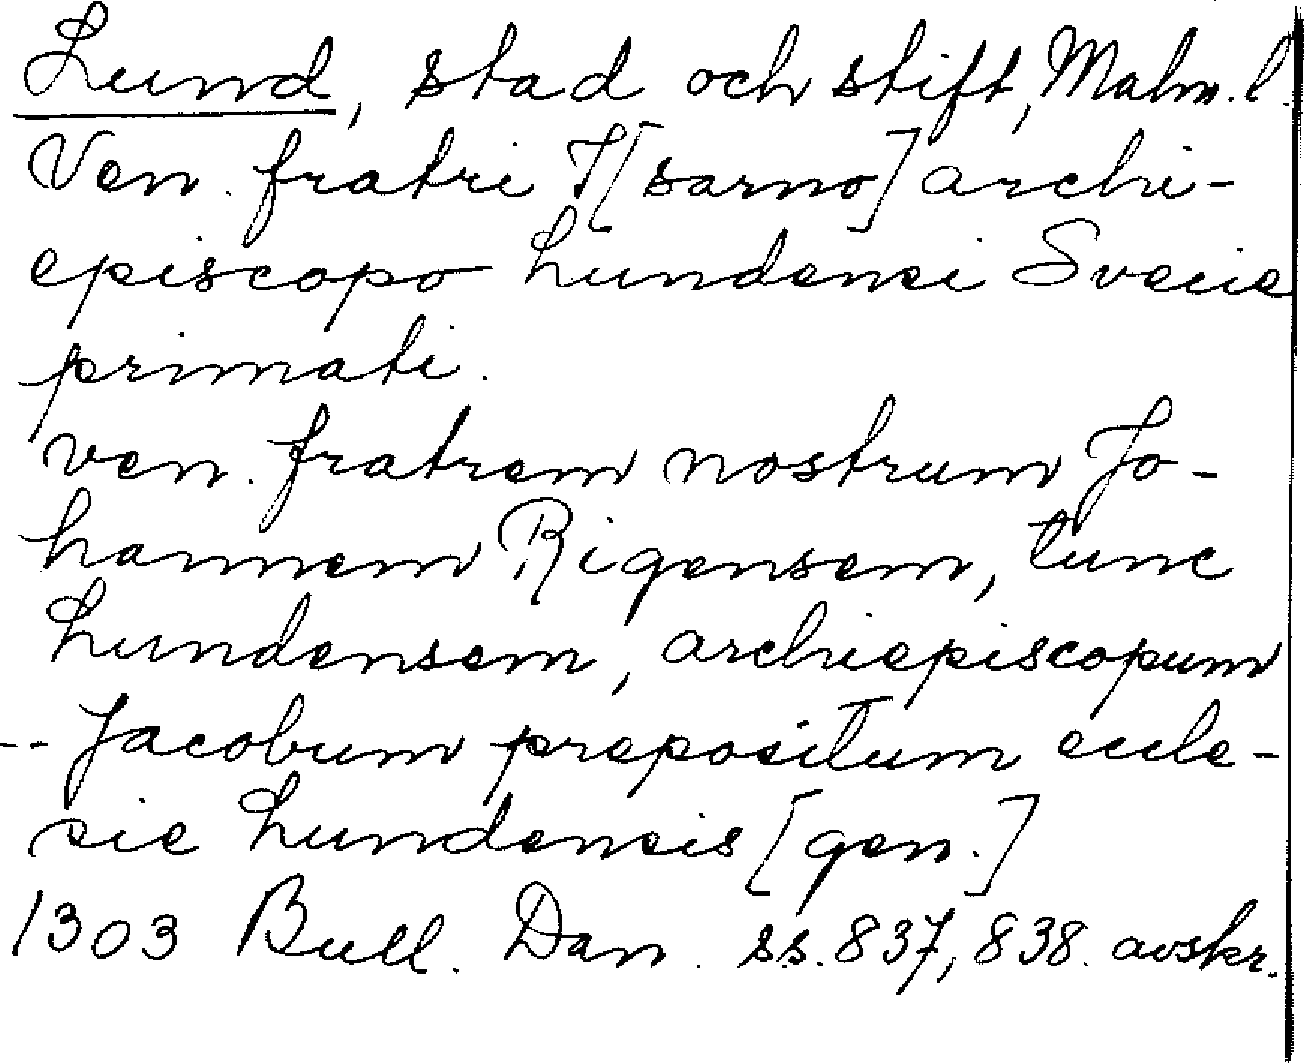 Lund, stad och stift, Malm. l
Ven. fratri I[sarno] archi-
episcopo Lundensi Svecie
primati.
ven. fratrem nostrum Jo-
hannem Rigensem, tunc
Lundensem, archiepiscopum
-- Jacobum prepositum eccle-
sie Lundensis [gen.]
1303 Bull. Dan. ss. 837, 838. avskr.